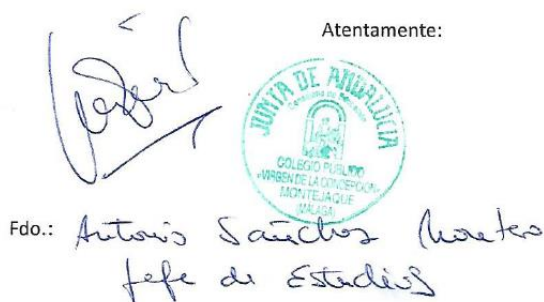 Atentamente:
JUNTA DE ANDALUCIA
COLEGIO PUBLICO
«VIRGEN DE LA CONCEPCION»
MONTEJAQUE
(MALAGA)
Fdo.: Antonio Sánchez Montero
Jefe de Estudios